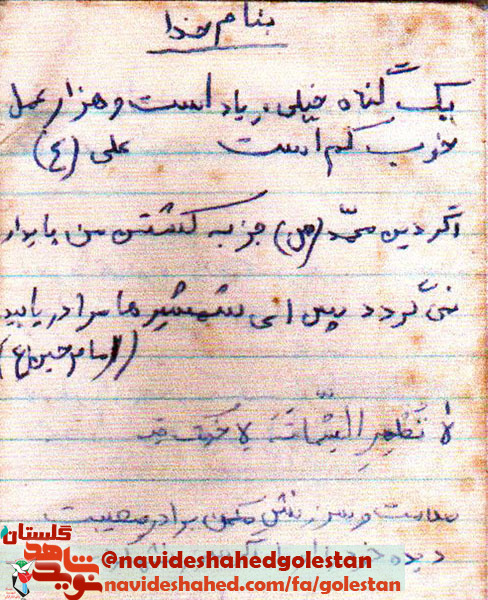 بنام خدا
یک گناه خیلی زیاد است و هزار عمل
خوب کم است علی (ع)
اگر دین محمد (ص) جز به کشتن من پایدار
نمی گردد پس ای شمشیرها مرا دریابید
((امام حسین (ع)
لا تُظْهِرِ الشَّماتَةَ لِأَخیکَ
ملامت و سرزنش مکن برادر مصیبت
دیده خود را
گلستان
نوید شاهد
@navideshahedgolestan
navideshahed.com/fa/golestan